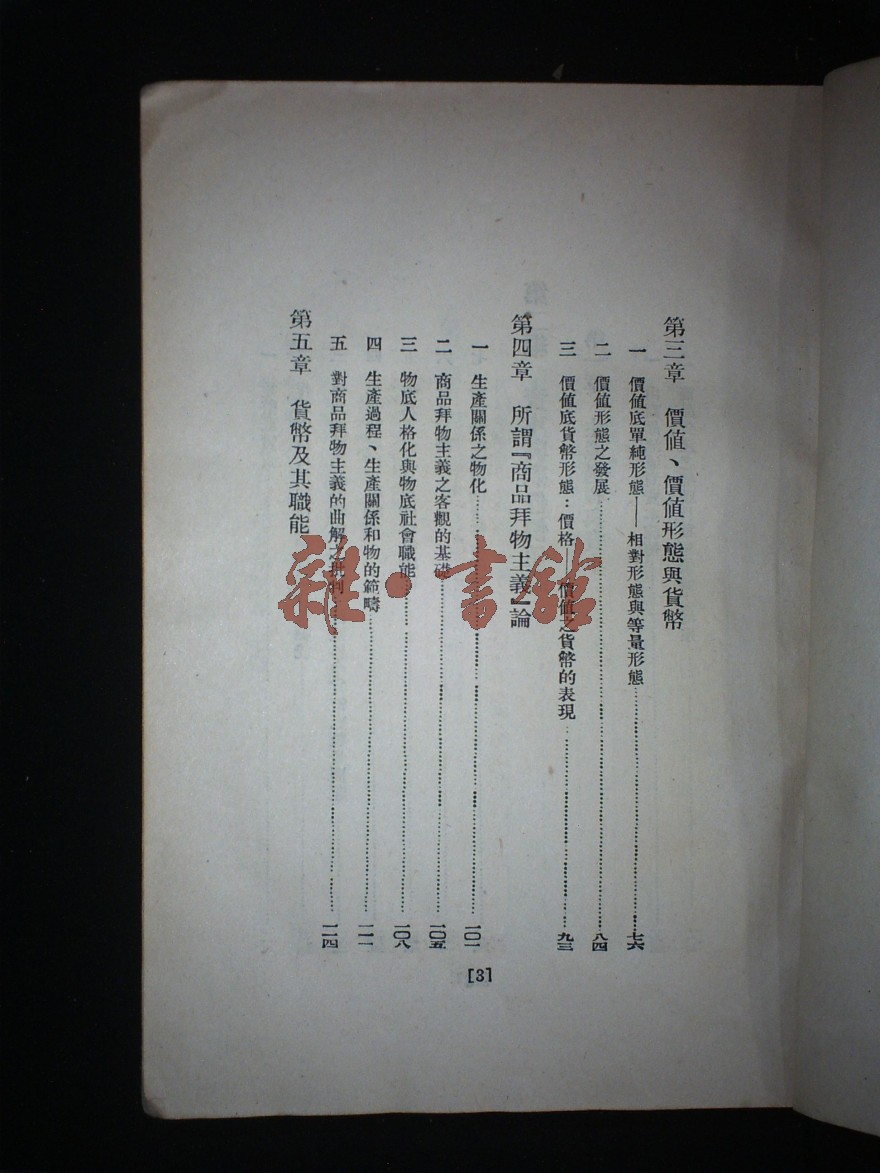 第三章　價值、價值形態與貨幣
一　價值底單純形態——相對形態與等量形態……七六
二　價值形態之發展……八四
三　價值底貨幣形態：價格——價值之貨幣的表現……九三
第四章　所謂『商品拜物主義』論
一　生產關係之物化……一〇一
二　商品拜物主義之客觀的基礎……一〇五
三　物底人格化與物底社會職能……一〇八
四　生產過程、生產關係和物的範疇……一一一
五　對商品拜物主義的曲解之批判……一一四
第五章　貨幣及其職能
[3]
雜·書館